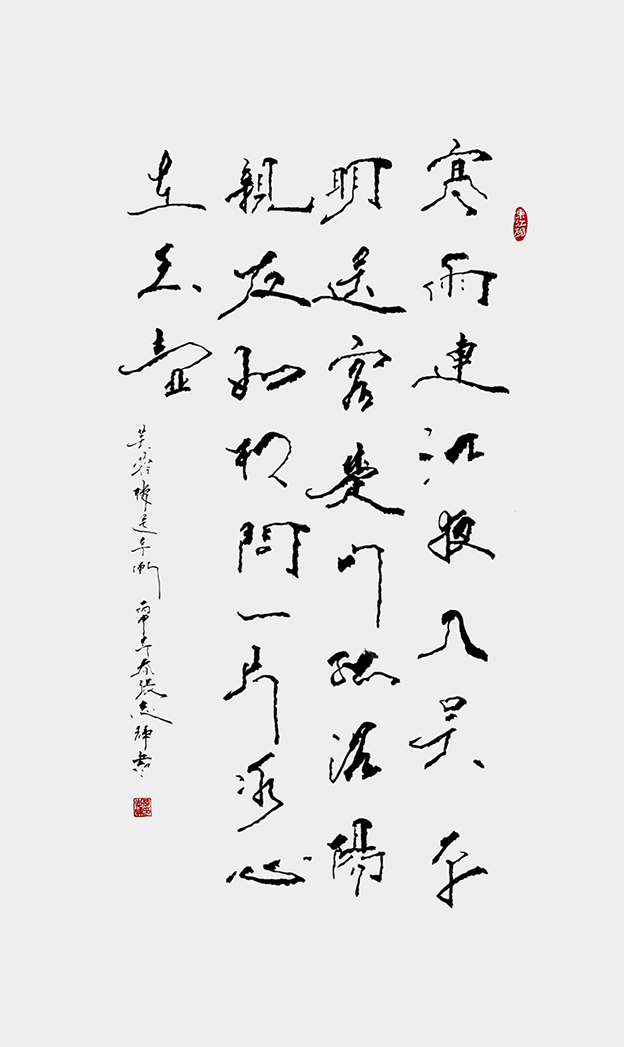 寒雨連江夜入吳平
明送客楚山孤洛陽
親友如相問一片冰心
在玉壺
芙蓉樓送辛漸 丙申年春張志書